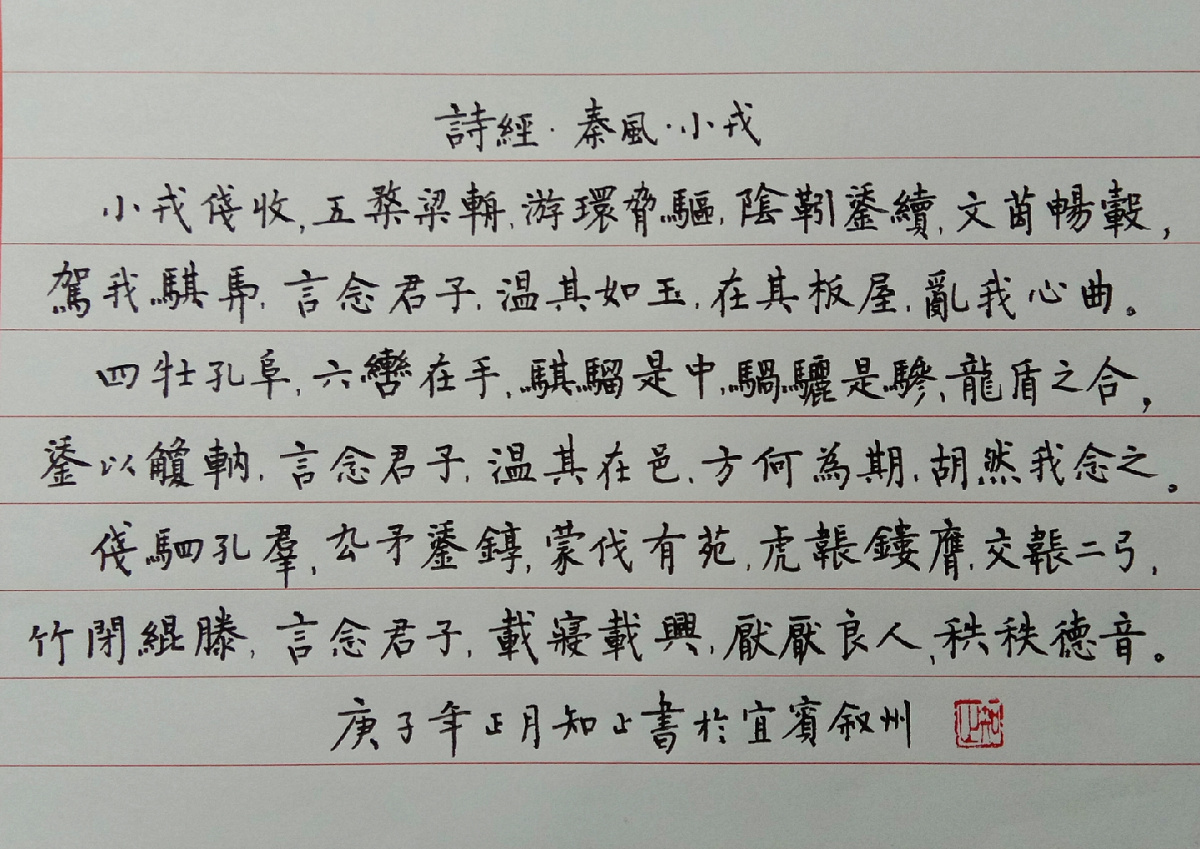 詩經·秦風·小戎
小戎俴收,五楘梁輈,游環脅驅,陰靷鋈續,文茵暢轂,
駕我騏馵,言念君子,温其如玉,在其板屋,亂我心曲。
四牡孔阜,六轡在手,騏騮是中,騧驪是驂,龍盾之合,
鋈以觼軜,言念君子,温其在邑,方何為期,胡然我念之。
俴駟孔羣,厹矛鋈錞,蒙伐有苑,虎韔鏤膺,交韔二弓,
竹閉緄縢,言念君子,載寢載興,厭厭良人,秩秩德音。
庚子年正月知止書於宜賓叙州
知止